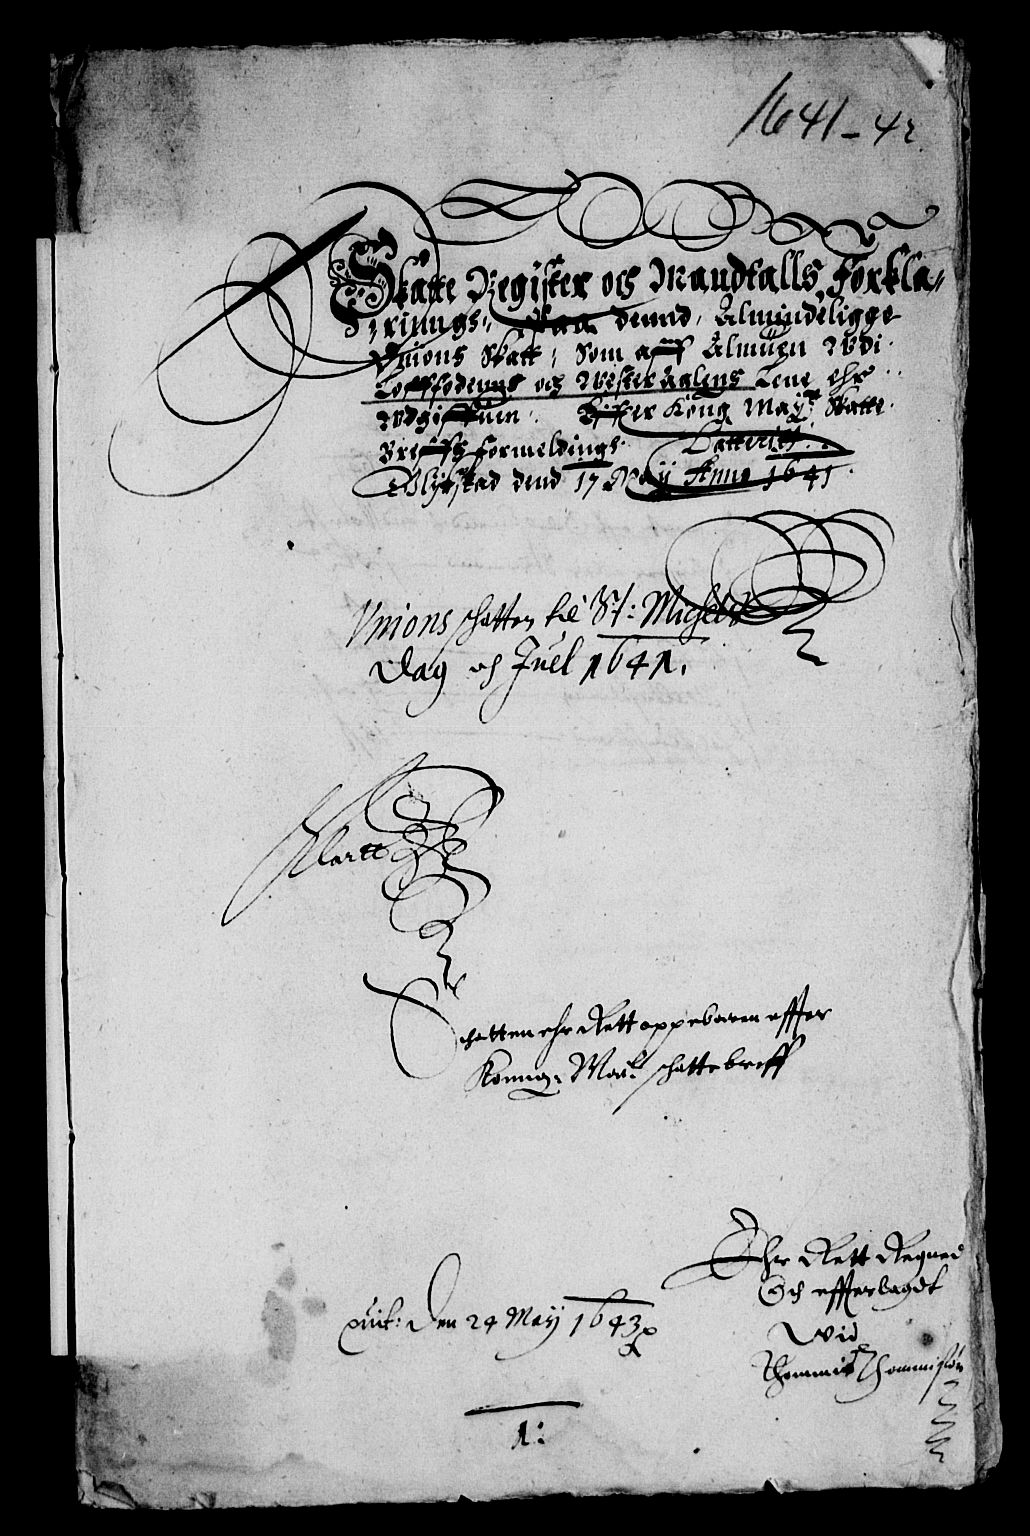 1641-42
Skatte Register och Mandtalls Forkla-
Friings, Paa dennd, Almindeligge
Vnions Skatt, Som aff Almuen Wdi
Loffodenns och Westeraalens Lene ehr
Wdgiffuen. Effter Kong May:tz Skatte
Breffs Formeldinge. Datterit
Glyckstad dend 17 May Anno 1641.
Vnions schatten til St: Michels
Dag och Juel 1641.
Klartt
Schatten ehr Rett oppebaaren effter
Konng: May: schatte breff
Ehr Rett Regned
Och effterlagdt
Wid
Thommis Thommissøn
quit: Den 24 May 1643
1: